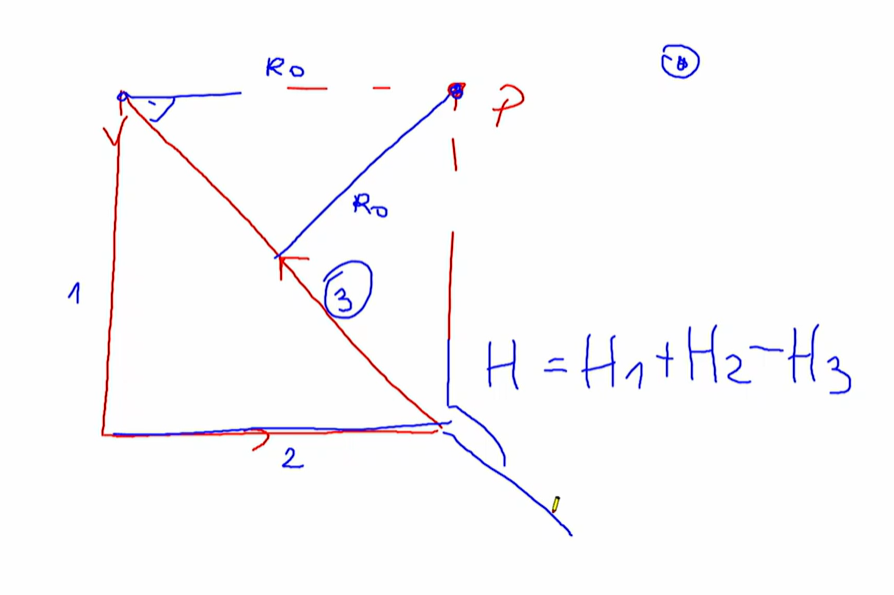 R0
P
R0
3
1
H = H1 + H2 - H3
2